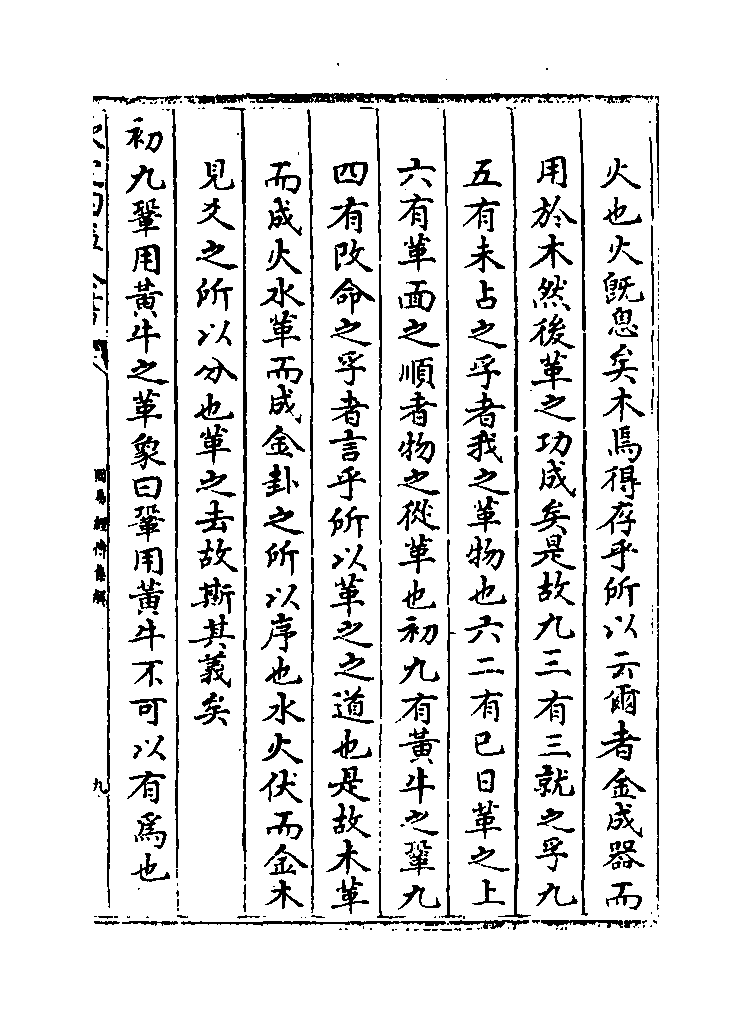 火也火旣息矣木焉得存乎所以云爾者金成器而
用於木然後革之功成矣是故九三有三就之孚九
五有未占之孚者我之革物也六二有巳日革之上
六有革面之順者物之從革也初九有黃牛之鞏九
四有改命之孚者言乎所以革之之道也是故木革
而成火水革而成金卦之所以序也水火伏而金木
見爻之所以分也革之去故斯其義矣
初九鞏用黃牛之革象曰鞏用黃牛不可以有爲也
周易經傳集解
九